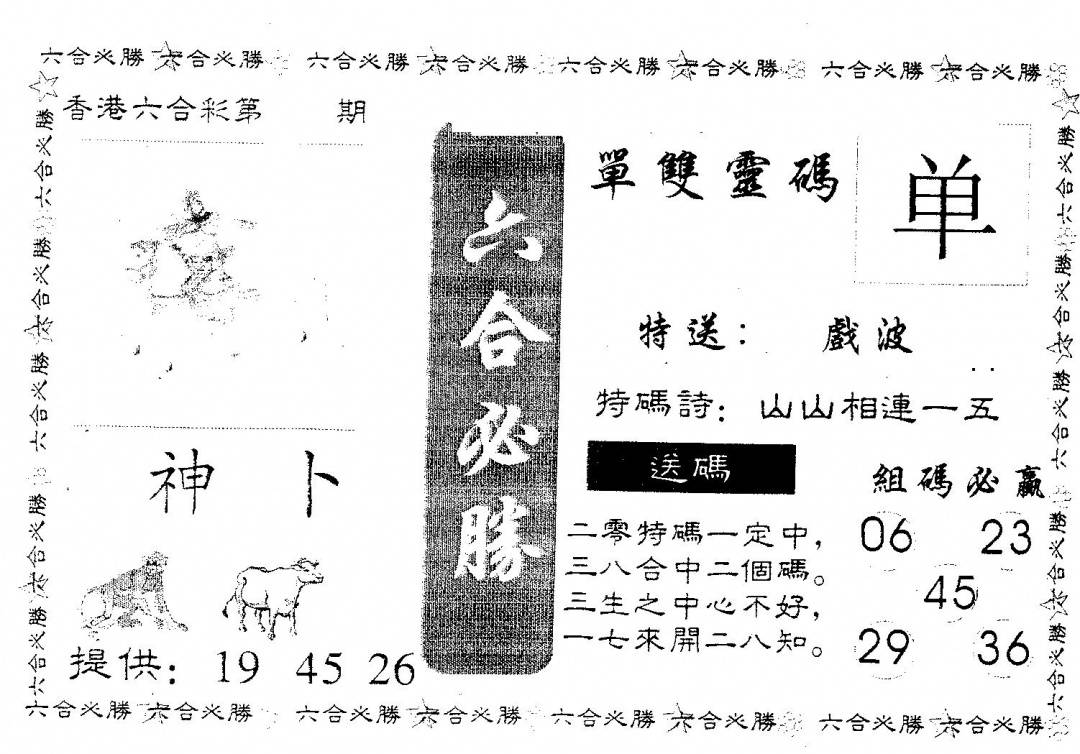 六合必勝 六合必勝 六合必勝 六合必勝 六合必勝 六合必勝 六合必勝 六合必勝
香港六合彩第 期
神卜
提供：19 45 26
六合必勝
單雙靈碼
单
特送：戲波
特碼詩：山山相連一五
送碼
二零特碼一定中，
三八合中二個碼。
三生之中心不好，
一七來開二八知。
組碼必贏
06 23
45
29 36
六合必勝 六合必勝 六合必勝 六合必勝 六合必勝
六合必勝 六合必勝 六合必勝 六合必勝 六合必勝
六合必勝 六合必勝 六合必勝 六合必勝 六合必勝 六合必勝 六合必勝 六合必勝